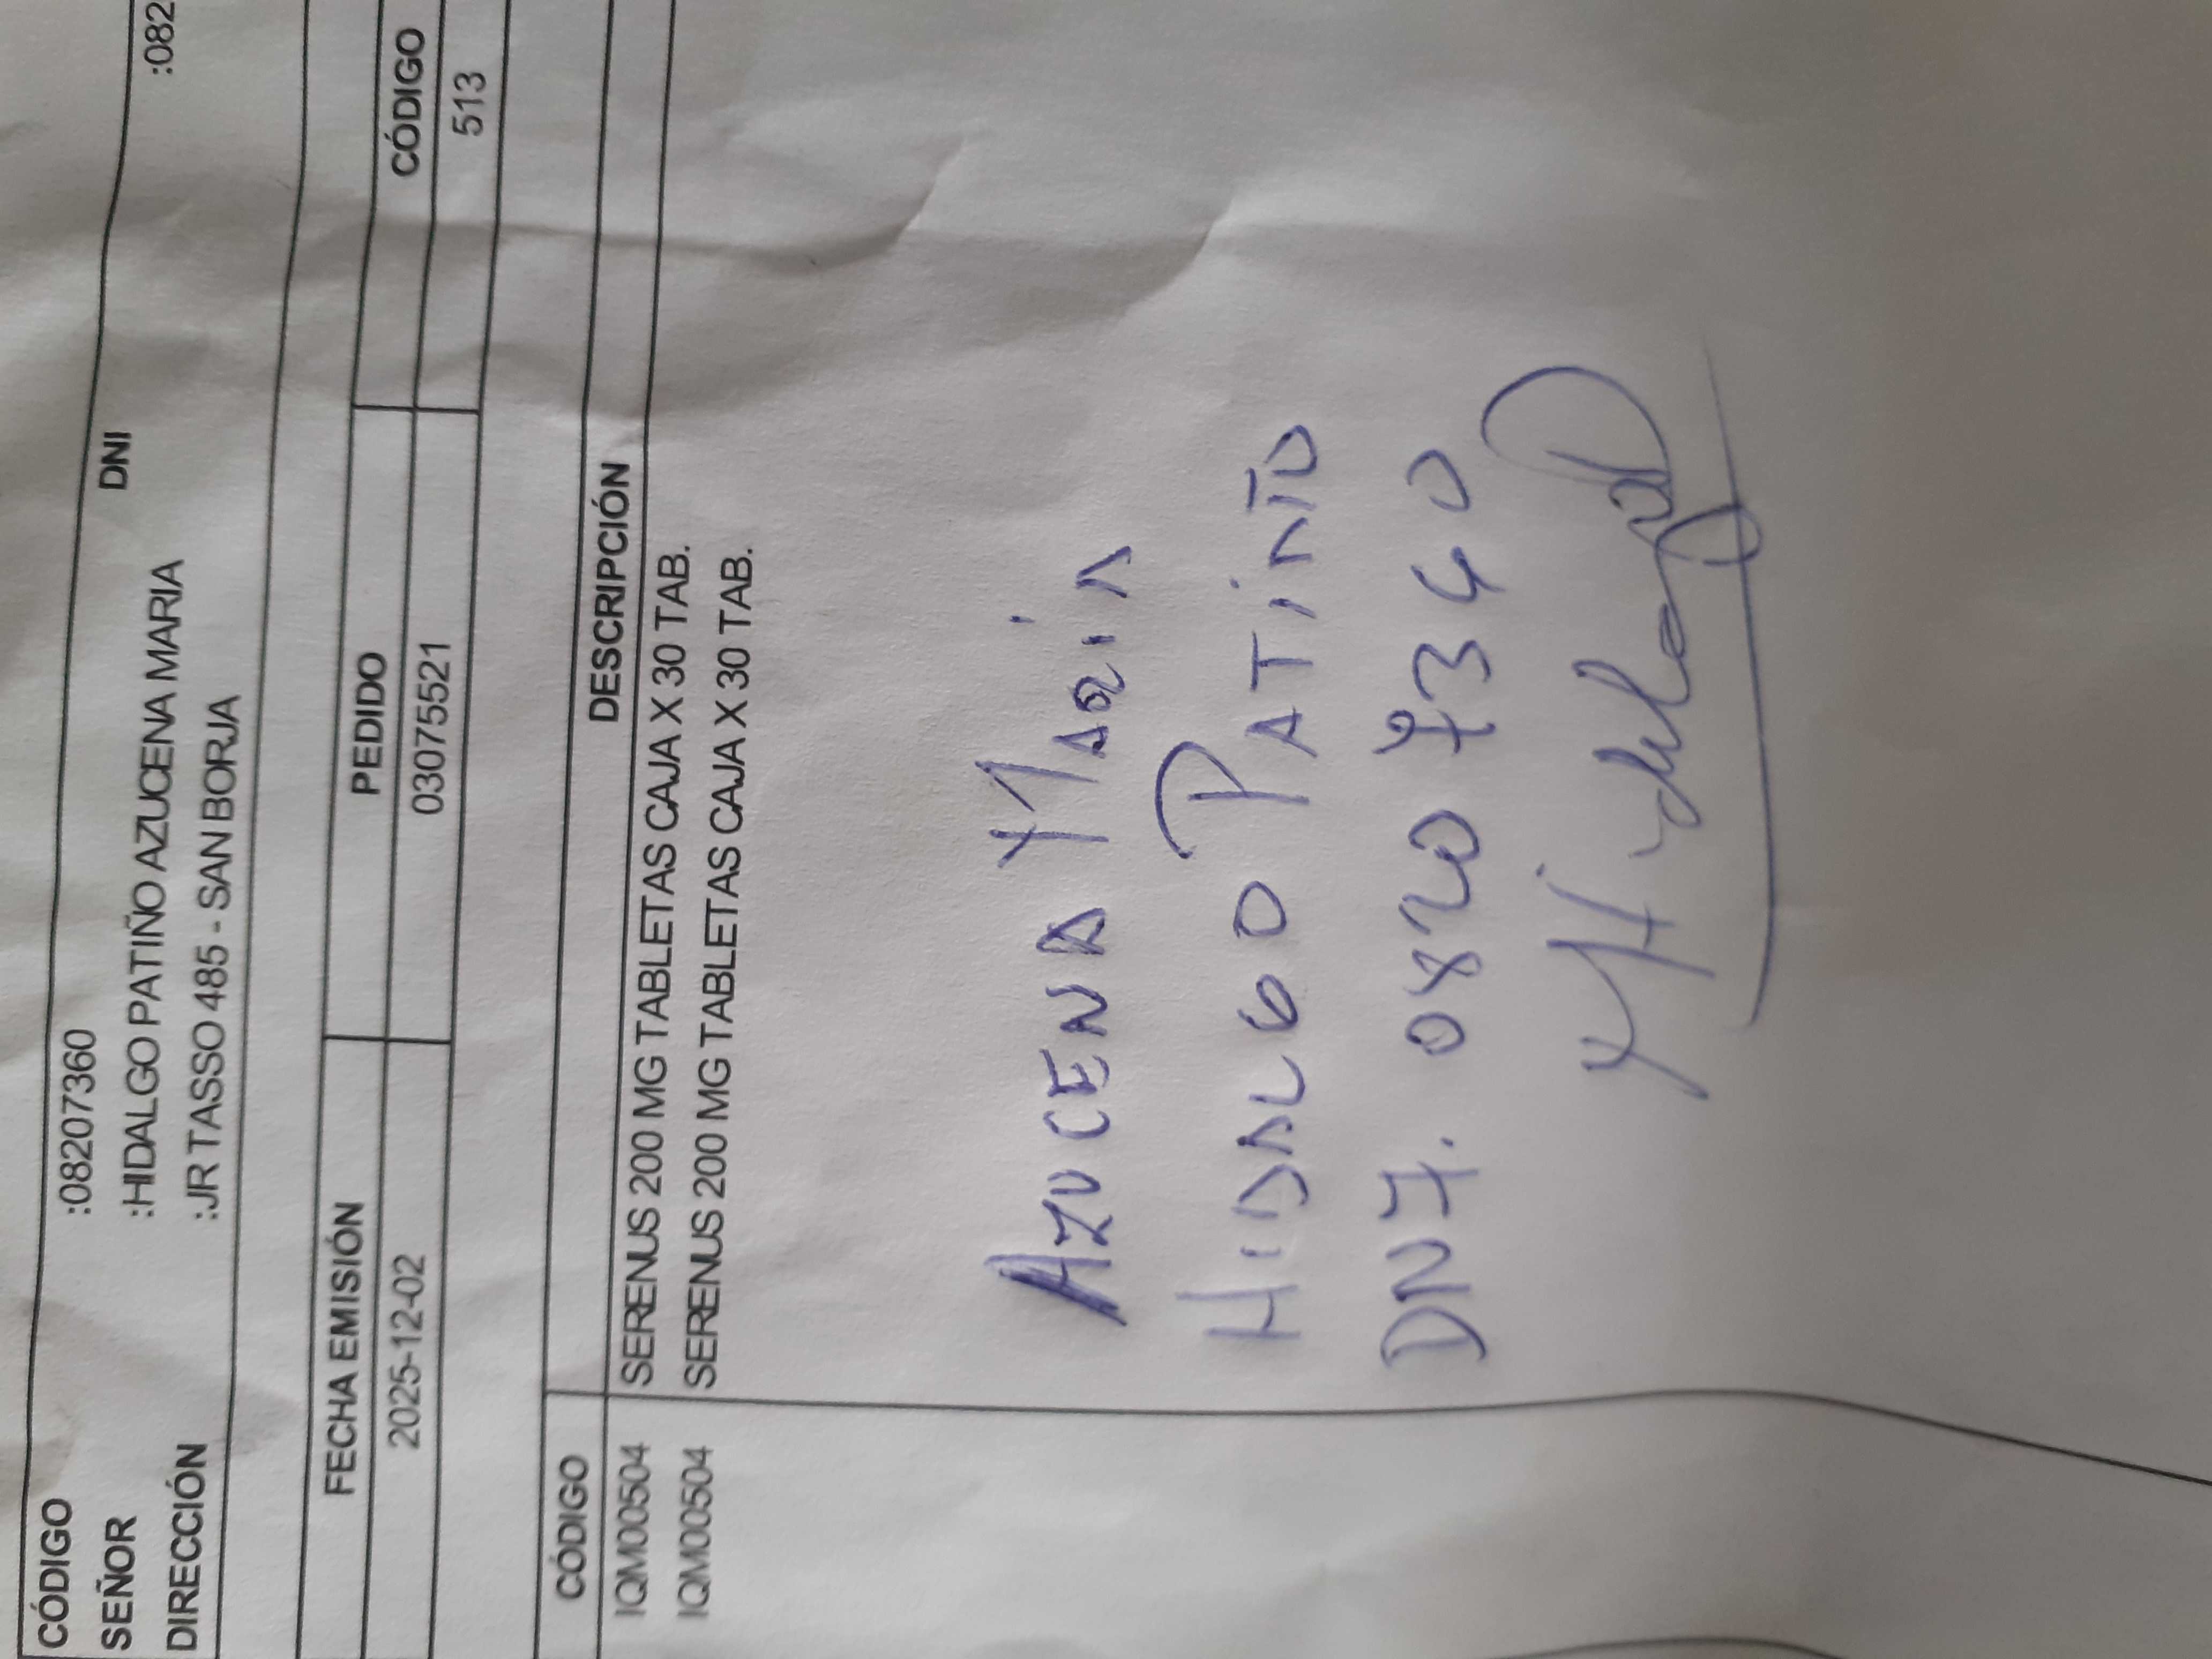 CÓDIGO :08207360
SEÑOR :HIDALGO PATIÑO AZUCENA MARIA DNI :082
DIRECCIÓN :JR TASSO 485 - SAN BORJA
FECHA EMISIÓN PEDIDO CÓDIGO
2025-12-02 03075521 513
CÓDIGO DESCRIPCIÓN
IQM00504 SERENUS 200 MG TABLETAS CAJA X 30 TAB.
IQM00504 SERENUS 200 MG TABLETAS CAJA X 30 TAB.
AZUCENA MARIA
HIDALGO PATIÑO
DNI. 08207340
AHidalgo